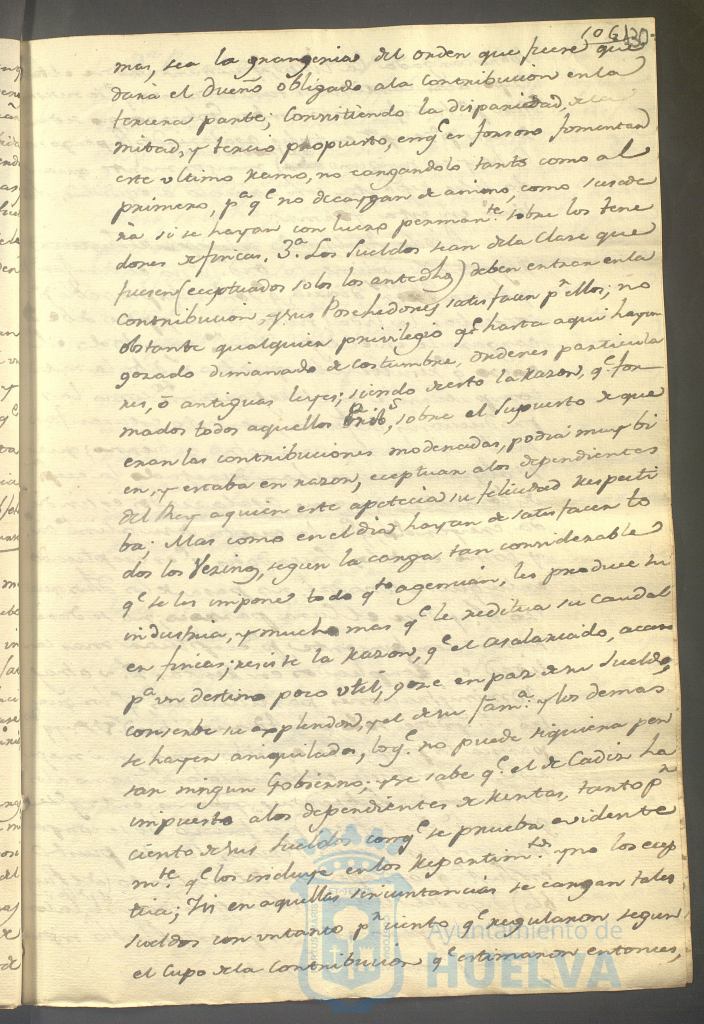 mas, sea la grangeria del orden que fuere que
dará el dueño obligado a la contribucion en la
tercera parte; Consistiendo la disparidad, de la
mitad, y tercio propuesto, en q.e es forsoso fomentar
este ultimo ramo, no cargandolo tanto como al
primero, p.a q.e no decaygan de animo, como sucede
ra si se hayan con lucro perman.te sobre los tene
dores de fincas. 3.a Los Sueldos sean de la Clase que
fuesen (eceptuados solos los antedhos) deben entrar en la
contribucion, y sus Poschedores satisfacer p.r ellos; no
obstante qualquier privilegio q.e hasta aqui hayan
gozado dimanado de costumbre, ordenes particula
res, ó antiguas leyes; siendo de esto la razon, q.e for
mados todos aquellos sobre el supuesto de que
eran las contribuciones moderadas, podia muy bi
en, y estaba en razon, eceptuar a los dependientes
del Rey a quien este apetecia su felicidad respecti
ba; Mas como en el dia hayan de satisfacer to
dos los Vezinos, segun la carga tan considerable
q.e se les impone todo q.to agencian, les produce su
industria, y mucho mas q.e le reditua su caudal
en fincas; resiste la razon, q.e el asalariado, acaso
p.r un destino poco util, goze en paz de su sueldo,
conserbe su explendor, y el de su fam.a y los demas
se hayen aniquilados, lo q.e no puede siquiera pen
sar ningun Gobierno; y se sabe q.e el de Cadiz ha
impuesto a los dependientes de Rentas, tanto p.r
ciento de sus sueldos con q.e se prueba evidente
m.te q.e los incluye en los Repartim.tos y no los ecep
tua; Y si en aquellas sircuntancias se cargan tales
sueldos con un tanto p.r ciento q.e regularon segun
el Cupo de la contribución q.e estimaron entonces,
Ayuntamiento de
HUELVA